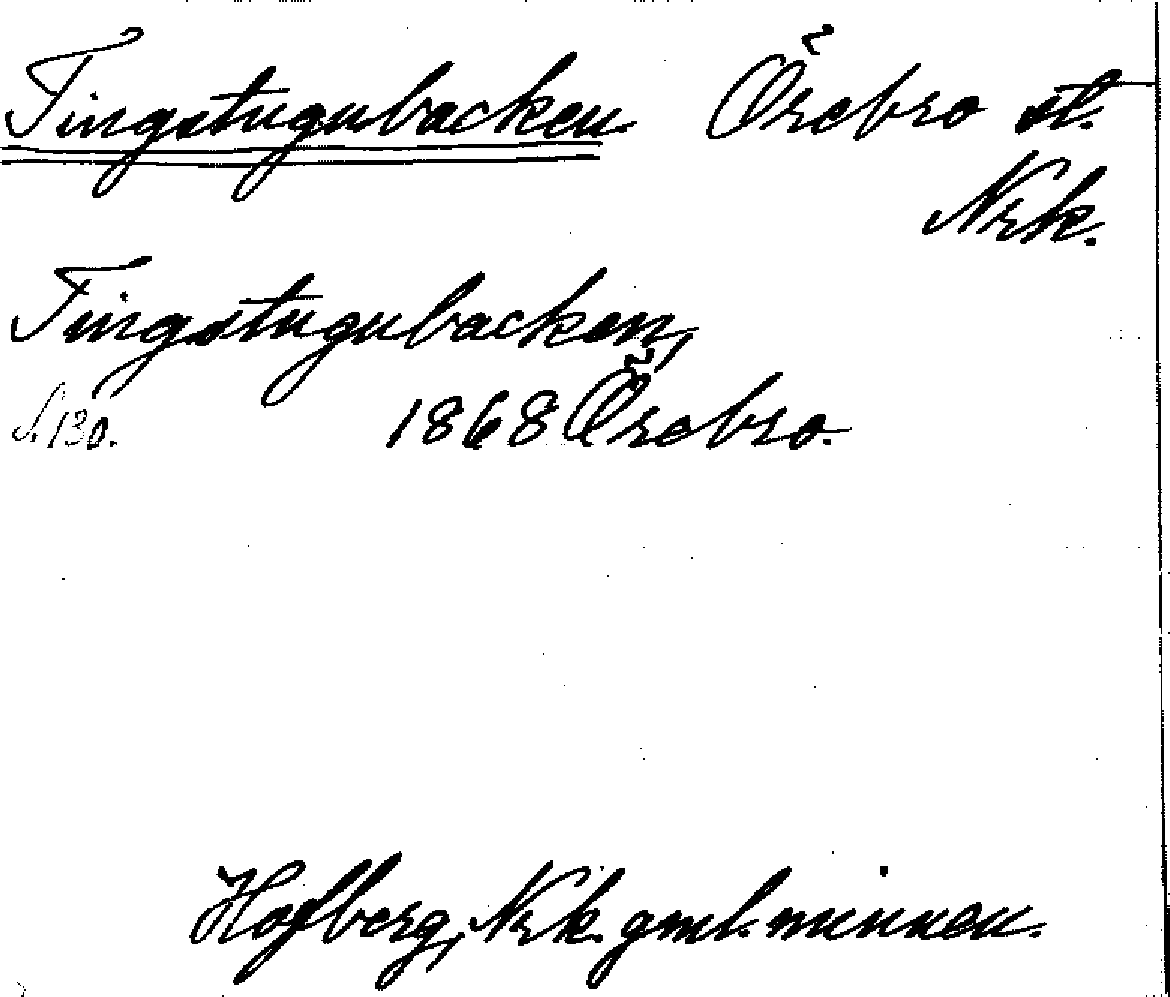 Tingstugubacken Örebro st.
Nrk.
Tingstugubacken,
S. 130. 1868 Örebro.
Hofberg, Nrk. gml. minnen.